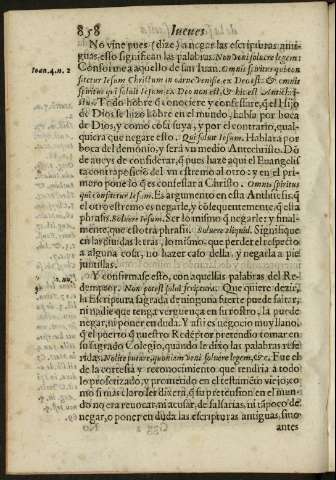 858 Iueues
No vine pues (dize) a negar las escripturas anti-
guas, esso significan las palabras Non veni soluere legem:
Ioan. 4. n. 2 Conforme a aquello de san Iuan. Omnis spiritus qui con
fitetur Iesum Christum in carne venisse ex Deo est: & omnis
spiritus qui soluit Iesum ex Deo non est, & hic est Antichri-
stus. Todo hõbre q conociere y confessare, q el Hijo
de Dios se hizo hõbre en el mundo, habla por boca
de Dios, y como cosa suya, y por el contrario, qual-
quiera que negare esto. Qui soluit Iesum. Hablara por
boca del demonio, y será vn medio Antechristo. Dõ
de aueys de considerar, q pues haze aqui el Euangelis
ta contraposiciõ del vn estremo al otro: y en el pri-
mero pone lo q es confessar a Christo. Omnis spiritus
qui confitetur Iesum. Es argumento en esta Antitesis, q
el otro estremo es negarle, y cõsequentemente, q esta
phrasis. Soluere Iesum. Ser lo mismo q negarle: y final-
mente, que es otra phrasis. Soluere aliquid. Signifique
en las diuidas letras, lo mismo, que perder el respecto
a alguna cosa, no hazer caso della, y negarla a pie
juntillas.
Y confirmase esto, con aquellas palabras del Re-
demptor. Non potest solui scriptura. Que quiere dezir,
la Escriptura sagrada de ninguna suerte puede faltar,
ni nadie que tenga verguença en su rostro, la puede
negar, ni poner en duda. Y assi es negocio muy llano,
q el puerto q nuestro Redẽptor pretendio tomar en
su sagrado Colegio, quando le dixo las palabras refe-
ridas. Nolite putare, quoniam veni soluere legem, &c. Fue el
de la cortesia y reconocimiento que tendria a todo
lo profetizado, y prometido en el testamẽto viejo, co-
mo si mas claro les dixera, q su pretension en el mun-
do no era reuocar, ni acusar, de falsarias, ni tãpoco de
negar, o poner en duda las escripturas antiguas, sino
antes